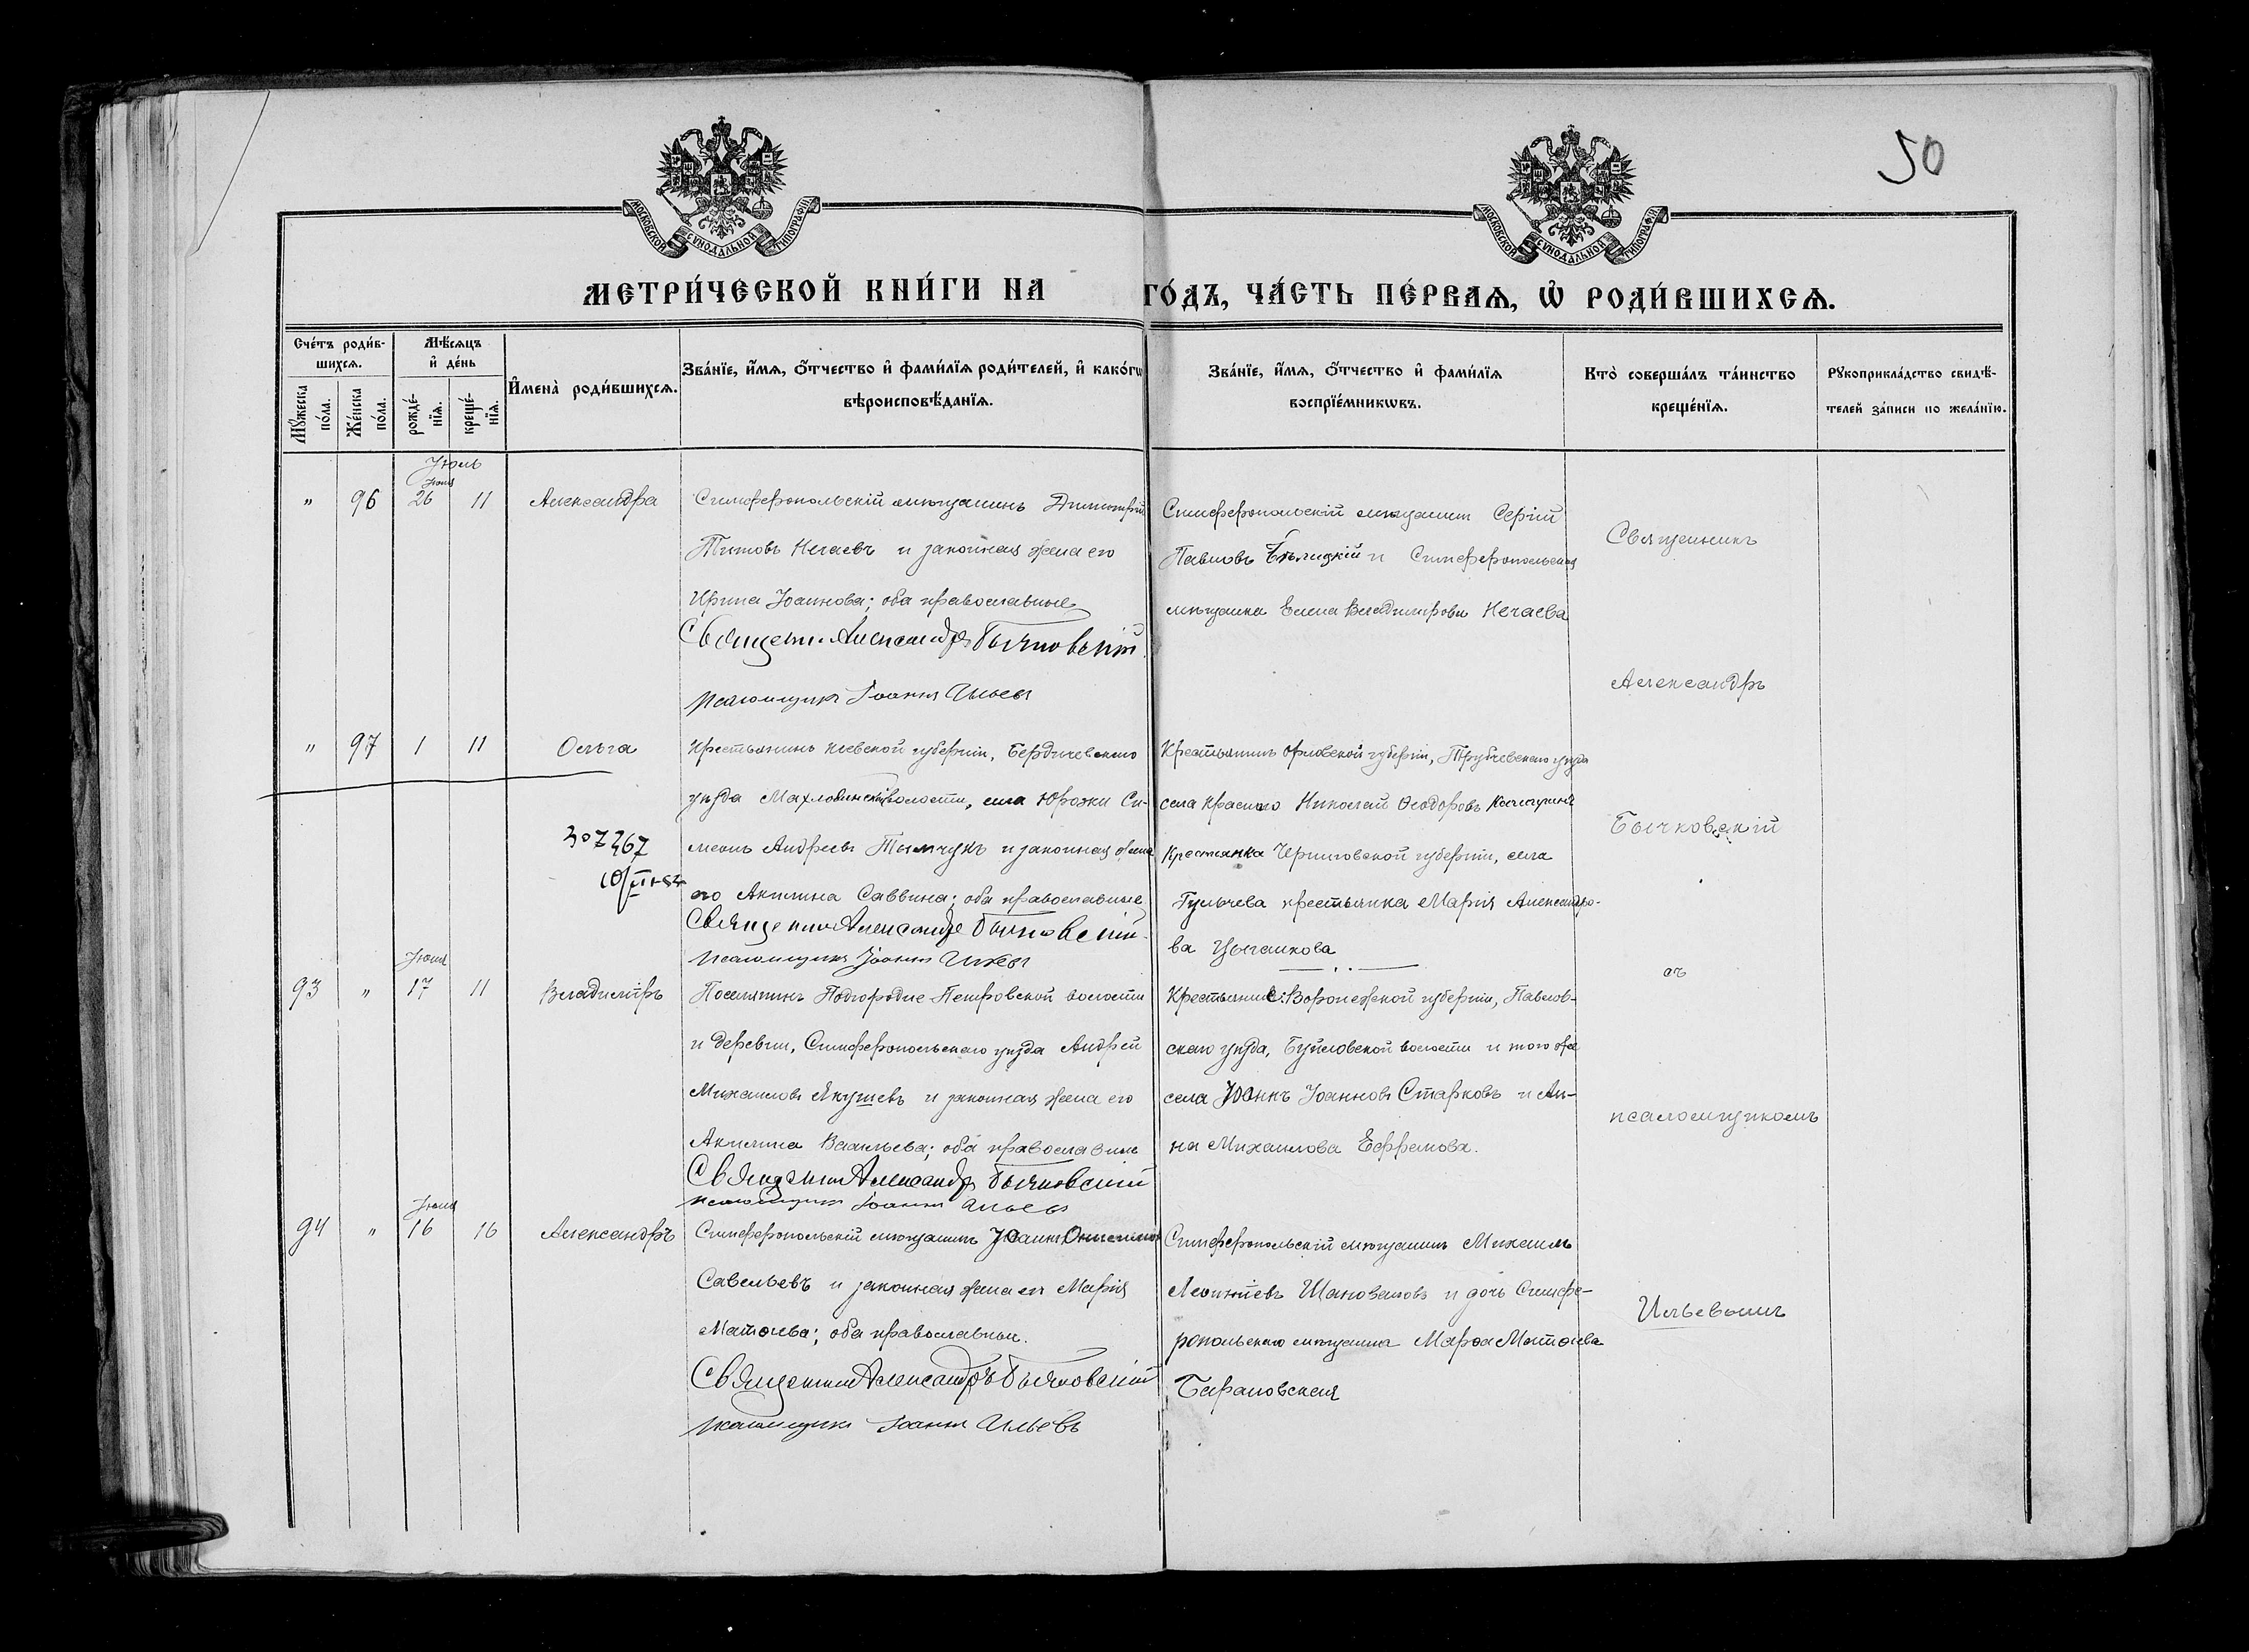 50
МОСКОВСКОЙ СѴНОДАЛЬНОЙ ТИПОГРАФІИ
МОСКОВСКОЙ СѴНОДАЛЬНОЙ ТИПОГРАФІИ
МЕТРИ́ЧЕСКОЙ КНИ́ГИ НА ГО́ДЪ, ЧА́СТЬ ПЕ́РВАѦ, Ѡ҆ РОДИ́ВШИХСѦ.
Сче́тъ роди́в-
шихсѧ.
Мꙋ́жеска по́ла.
Же́нска по́ла.
Мѣ́сѧцъ
и҆ де́нь
рожде́-
нїѧ.
креще́-
нїѧ.
И҆мена̀ роди́вшихсѧ.
Зва́нїе, и҆́мѧ, ѻ҆́тчество и҆ фами́лїѧ роди́телей, и҆ како́гѡ
вѣроисповѣ́данїѧ.
Зва́нїе, и҆́мѧ, ѻ҆́тчество и҆ фами́лїѧ
воспрїе́мникѡвъ.
Кто̀ соверша́лъ та́инство
креще́нїѧ.
Рꙋкоприкла́дство свидѣ́-
телей за́писи по жела́нїю.
Іюль
Іюня
" 96 26 11 Александра
Симферопольскій мѣщанинъ Димитрій
Титовъ Нечаевъ и законная жена его
Ирина Іоаннова; оба православные
Священникъ Александръ Бычковскій
псаломщикъ Іоаннъ Ильевъ
Симферопольскій мѣщанин Сергій
Павловъ Бѣлицкій и Симферопольская
мѣщанка Елена Владимирова Нечаева
" 97 1 11 Ольга
307367
Крестьянинъ Кіевской губерніи, Бердичевскаго
уѣзда волости, села Юровки Си-
меонъ Андреевъ Тымчукъ и законная жена
его Акилина Саввина; оба православные
Священникъ Александръ Бычковскій
псаломщикъ Іоаннъ Ильевъ
Крестьянинъ Орловской губерніи, Трубчевскаго уѣзда
села Краснаго Николай Ѳеодоровъ
Крестьянка Черниговской губерніи, села
крестьянка Марія Александро-
ва Цыганкова
Іюня
93 " 17 11 Владиміръ
Поселянинъ Подгородне-Петровской волости
и деревни, Симферопольскаго уѣзда Андрей
Михаиловъ Якушевъ и законная жена его
Акилина Васильева; оба православные
Священникъ Александръ Бычковскій
псаломщикъ Іоаннъ Ильевъ
Крестьянинъ Воронежской губерніи, Павлов-
скаго уѣзда, Буйловской волости и того же
села Іоаннъ Іоанновъ Старковъ и Ан-
на Михаилова Ефремова.
Іюня
94 " 16 16 Александръ
Симферопольскій мѣщанинъ Іоаннъ
Савельевъ и законная жена его Марія
Матѳіева; оба православные.
Священникъ Александръ Бычковскій
псаломщикъ Іоаннъ Ильевъ
Симферопольскій мѣщанинъ Михаилъ
Леонтіевъ Шаповаловъ и дочь Симфе-
ропольскаго мѣщанина Марѳа Матѳіева
Барановская
Священникъ
Александръ
Бычковскій
съ
псаломщикомъ
Ильевымъ